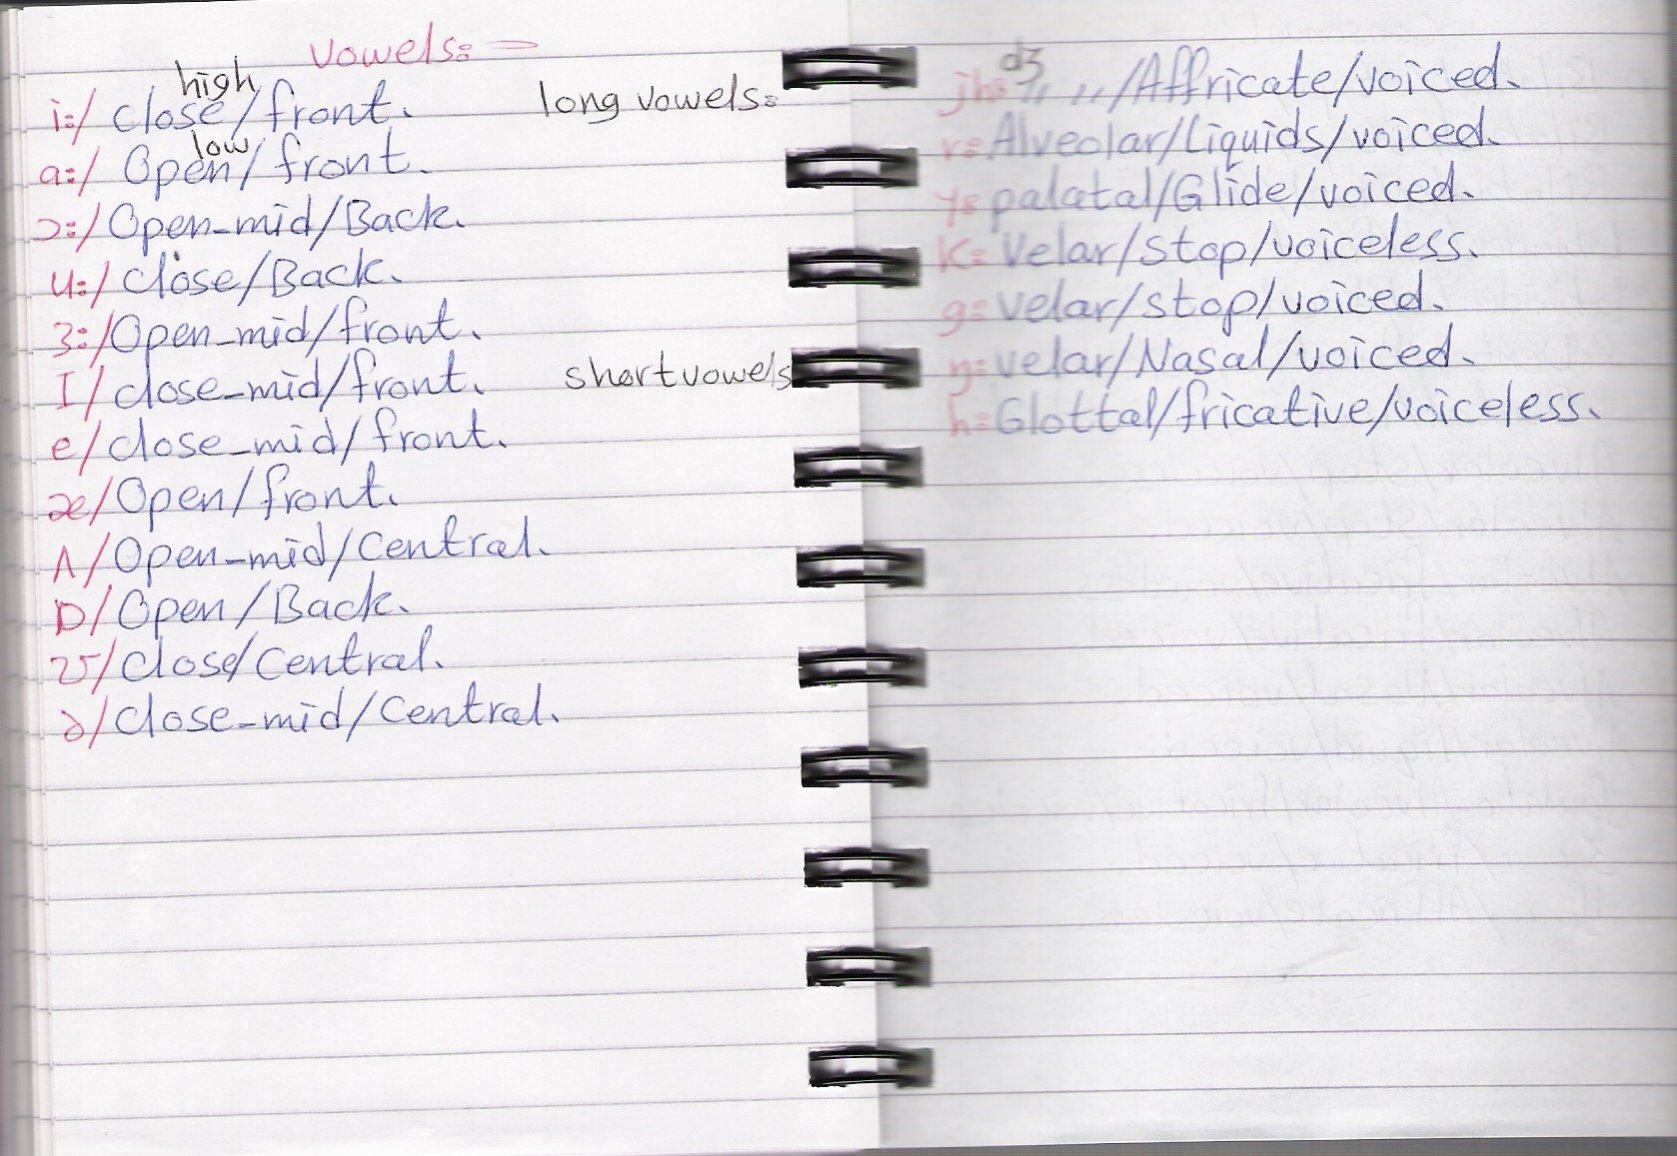 vowels:-
high
i:/ close/front. long vowels:
low
a:/ Open/front.
ɔ:/ Open-mid/Back.
u:/ close/Back.
3:/ Open-mid/front.
I/ close-mid/front. short vowels
e/ close-mid/front.
æ/ Open/front.
Λ/ Open-mid/Central.
D/ Open/Back.
ʊ/ close/Central.
ə/ close-mid/Central.
dʒ
jh= " "/Affricate/voiced.
r= Alveolar/Liquids/voiced.
y= palatal/Glide/voiced.
K= Velar/stop/voiceless.
g= velar/stop/voiced.
ŋ= velar/Nasal/voiced.
h= Glottal/fricative/voiceless.